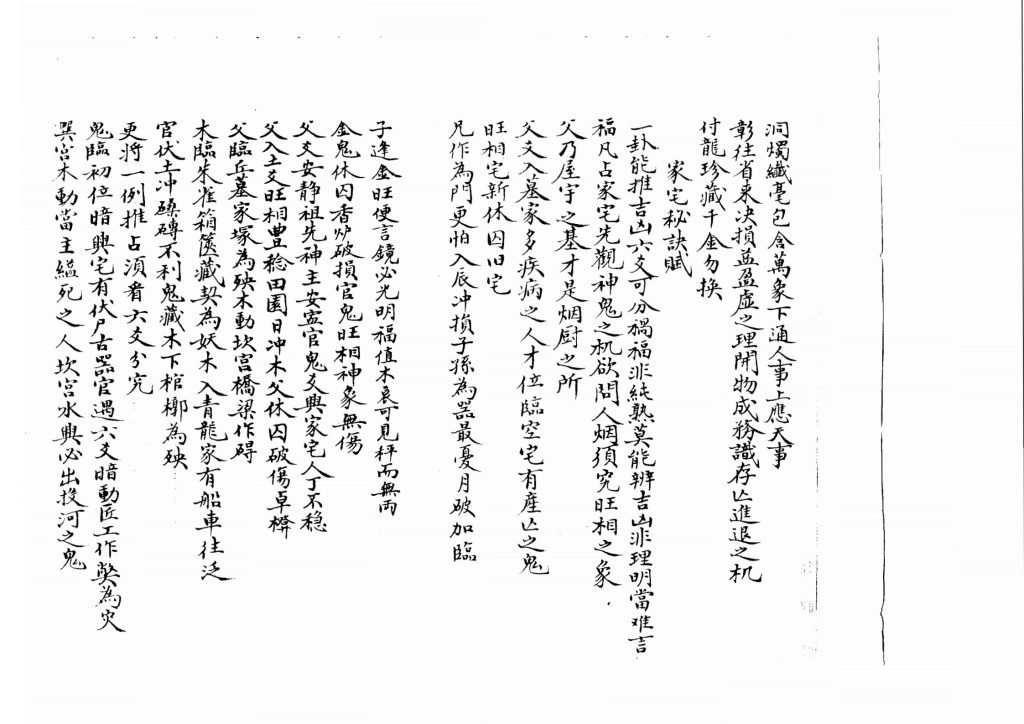 洞燭纖毫包含萬象下通人事上應天事
彰往省来决損益盈虚之理開物成務識存亡進退之机
付龍珍藏千金勿换
家宅秘訣賦
一卦能推吉凶六爻可分禍福非純熟莫能辨吉凶非理明當难言
福凡占家宅先觀神鬼之机欲問人烟須究旺相之象
父乃屋宇之基才是烟厨之所
父爻入墓家多疾病之人才位臨空宅有産亡之鬼
旺相宅新休囚旧宅
兄作為門更怕入辰冲損子孫為器最憂月破加臨
子逢金旺便言鏡必光明福值木衰可見秤而無両
金鬼休囚香炉破損官鬼旺相神象無傷
父爻安静祖先神主安寍官鬼爻興家宅人丁不穏
父入土爻旺相豊稔田園日冲木父休囚破傷卓櫈
父臨丘墓家塚為殃木動坎宮橋梁作碍
木臨朱雀箱篋藏契為妖木入青龍家有船車往泛
官伏土冲磉磚不利鬼藏木下棺槨為殃
更將一例推占須看六爻分究
鬼臨初位暗興宅有伏尸古器官遇六爻暗動匠工作獘為灾
巽宮木動當主縊死之人坎宮水興必出投河之鬼